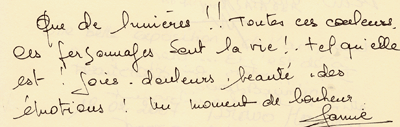 Que de lumières !! Toutes ces couleurs.
Ces personnages sont la vie !. tel qu'elle
est ! joies. douleurs. beauté. des
émotions ! Un moment de bonheur